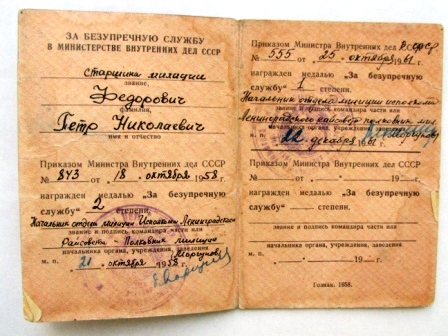 ЗА БЕЗУПРЕЧНУЮ СЛУЖБУ
В МИНИСТЕРСТВЕ ВНУТРЕННИХ ДЕЛ СССР
старшина милиции
звание,
Федорович
фамилия,
Петр Николаевич
имя и отчество
Приказом Министра Внутренних Дел СССР
№ 843 от „18“ октября 1958
награжден медалью „За безупречную
службу“ 2 степени.
Начальник отдела милиции Исполкома Ленинградского
Райсовета - Полковник милиции
звание и подпись командира части или
(Моргунов)
начальника органа, учреждения, заведения
м. п. „21“ октября 1958 г.
Приказом Министра Внутренних Дел РСФСР
№ 555 от „25“ октября 1961
награжден медалью „За безупречную
службу“ 1 степени.
Начальник отдела милиции исполкома
Ленинградского райсовета полковник
звание и подпись командира части или
начальника органа, учреждения, заведения
м. п. „22“ декабря 1961 г.
Приказом Министра Внутренних Дел СССР
№ от „ “ 19 г.
награжден медалью „За безупречную
службу“ степени.
звание и подпись командира части или
начальника органа, учреждения, заведения
м. п. „ “ 19 г.
Гознак. 1958.